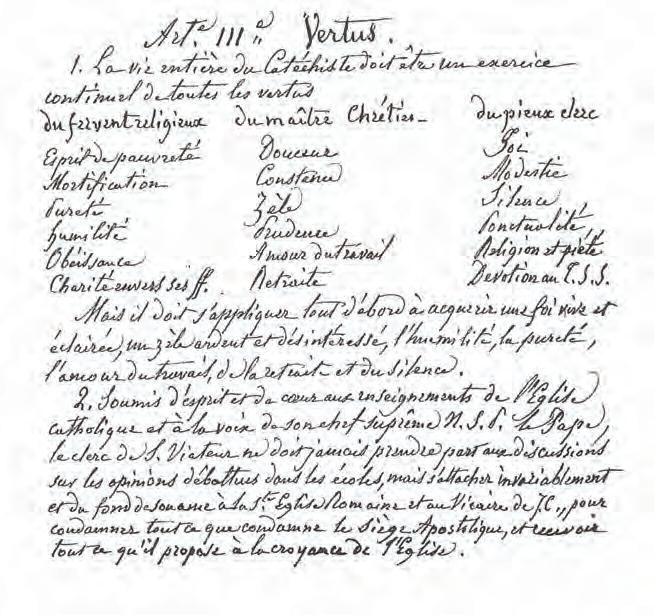 Art.e III.e Vertus.
1. La vie entière du Catéchiste doit être un exercice
continuel de toutes les vertus
du fervent religieux du maître Chrétien du pieux clerc
Esprit de pauvreté Douceur Foi
Mortification Constance Modestie
Pureté Zèle Silence
humilité Prudence Ponctualité,
Obéissance Amour du travail Religion et piété
Charité envers ses ff. Retraite Dévotion au T.S.S.
Mais il doit s'appliquer tout d'abord à acquérir une foi vive et
éclairée, un zèle ardent et désintéressé, l'humilité, la pureté,
l'amour du travail, de la retraite et du silence.
2. Soumis d'esprit et de cœur aux enseignements de l'Eglise
catholique et à la voix de son chef suprême N.S.P. le Pape,
le clerc de S. Viateur ne doit jamais prendre part aux discussions
sur les opinions débattues dans les écoles, mais s'attacher invariablement
et du fond de son âme à la Ste Eglise Romaine et au Vicaire de J.C., pour
condamner tout ce que condamne le Siège Apostolique, et recevoir
tout ce qu'il propose à la croyance de l'Eglise.